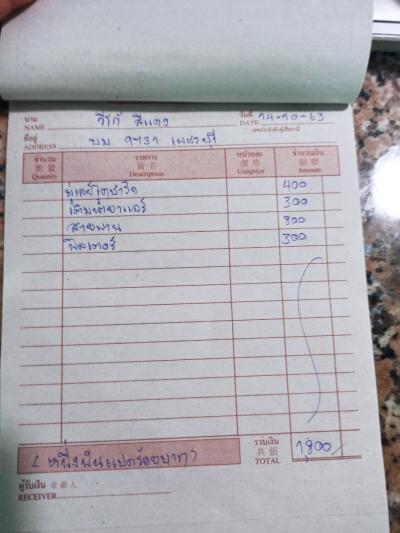 นาม วีโก้ สีแดง วันที่ 14-10-63
NAME DATE
เลขประจำตัวผู้เสียภาษี
ที่อยู่ บม 9731 เพชรบุรี
ADDRESS
จำนวน รายการ หน่วยละ จำนวนเงิน
數量 貨名 價格 銀額
Quantity Description Unitprice Amount
400
300
สายพาน 800
ฟิลเตอร์ 300
(หนึ่งพันแปดร้อยบาท) รวมเงิน 1,800/-
共銀
TOTAL
ผู้รับเงิน 收銀人
RECEIVER